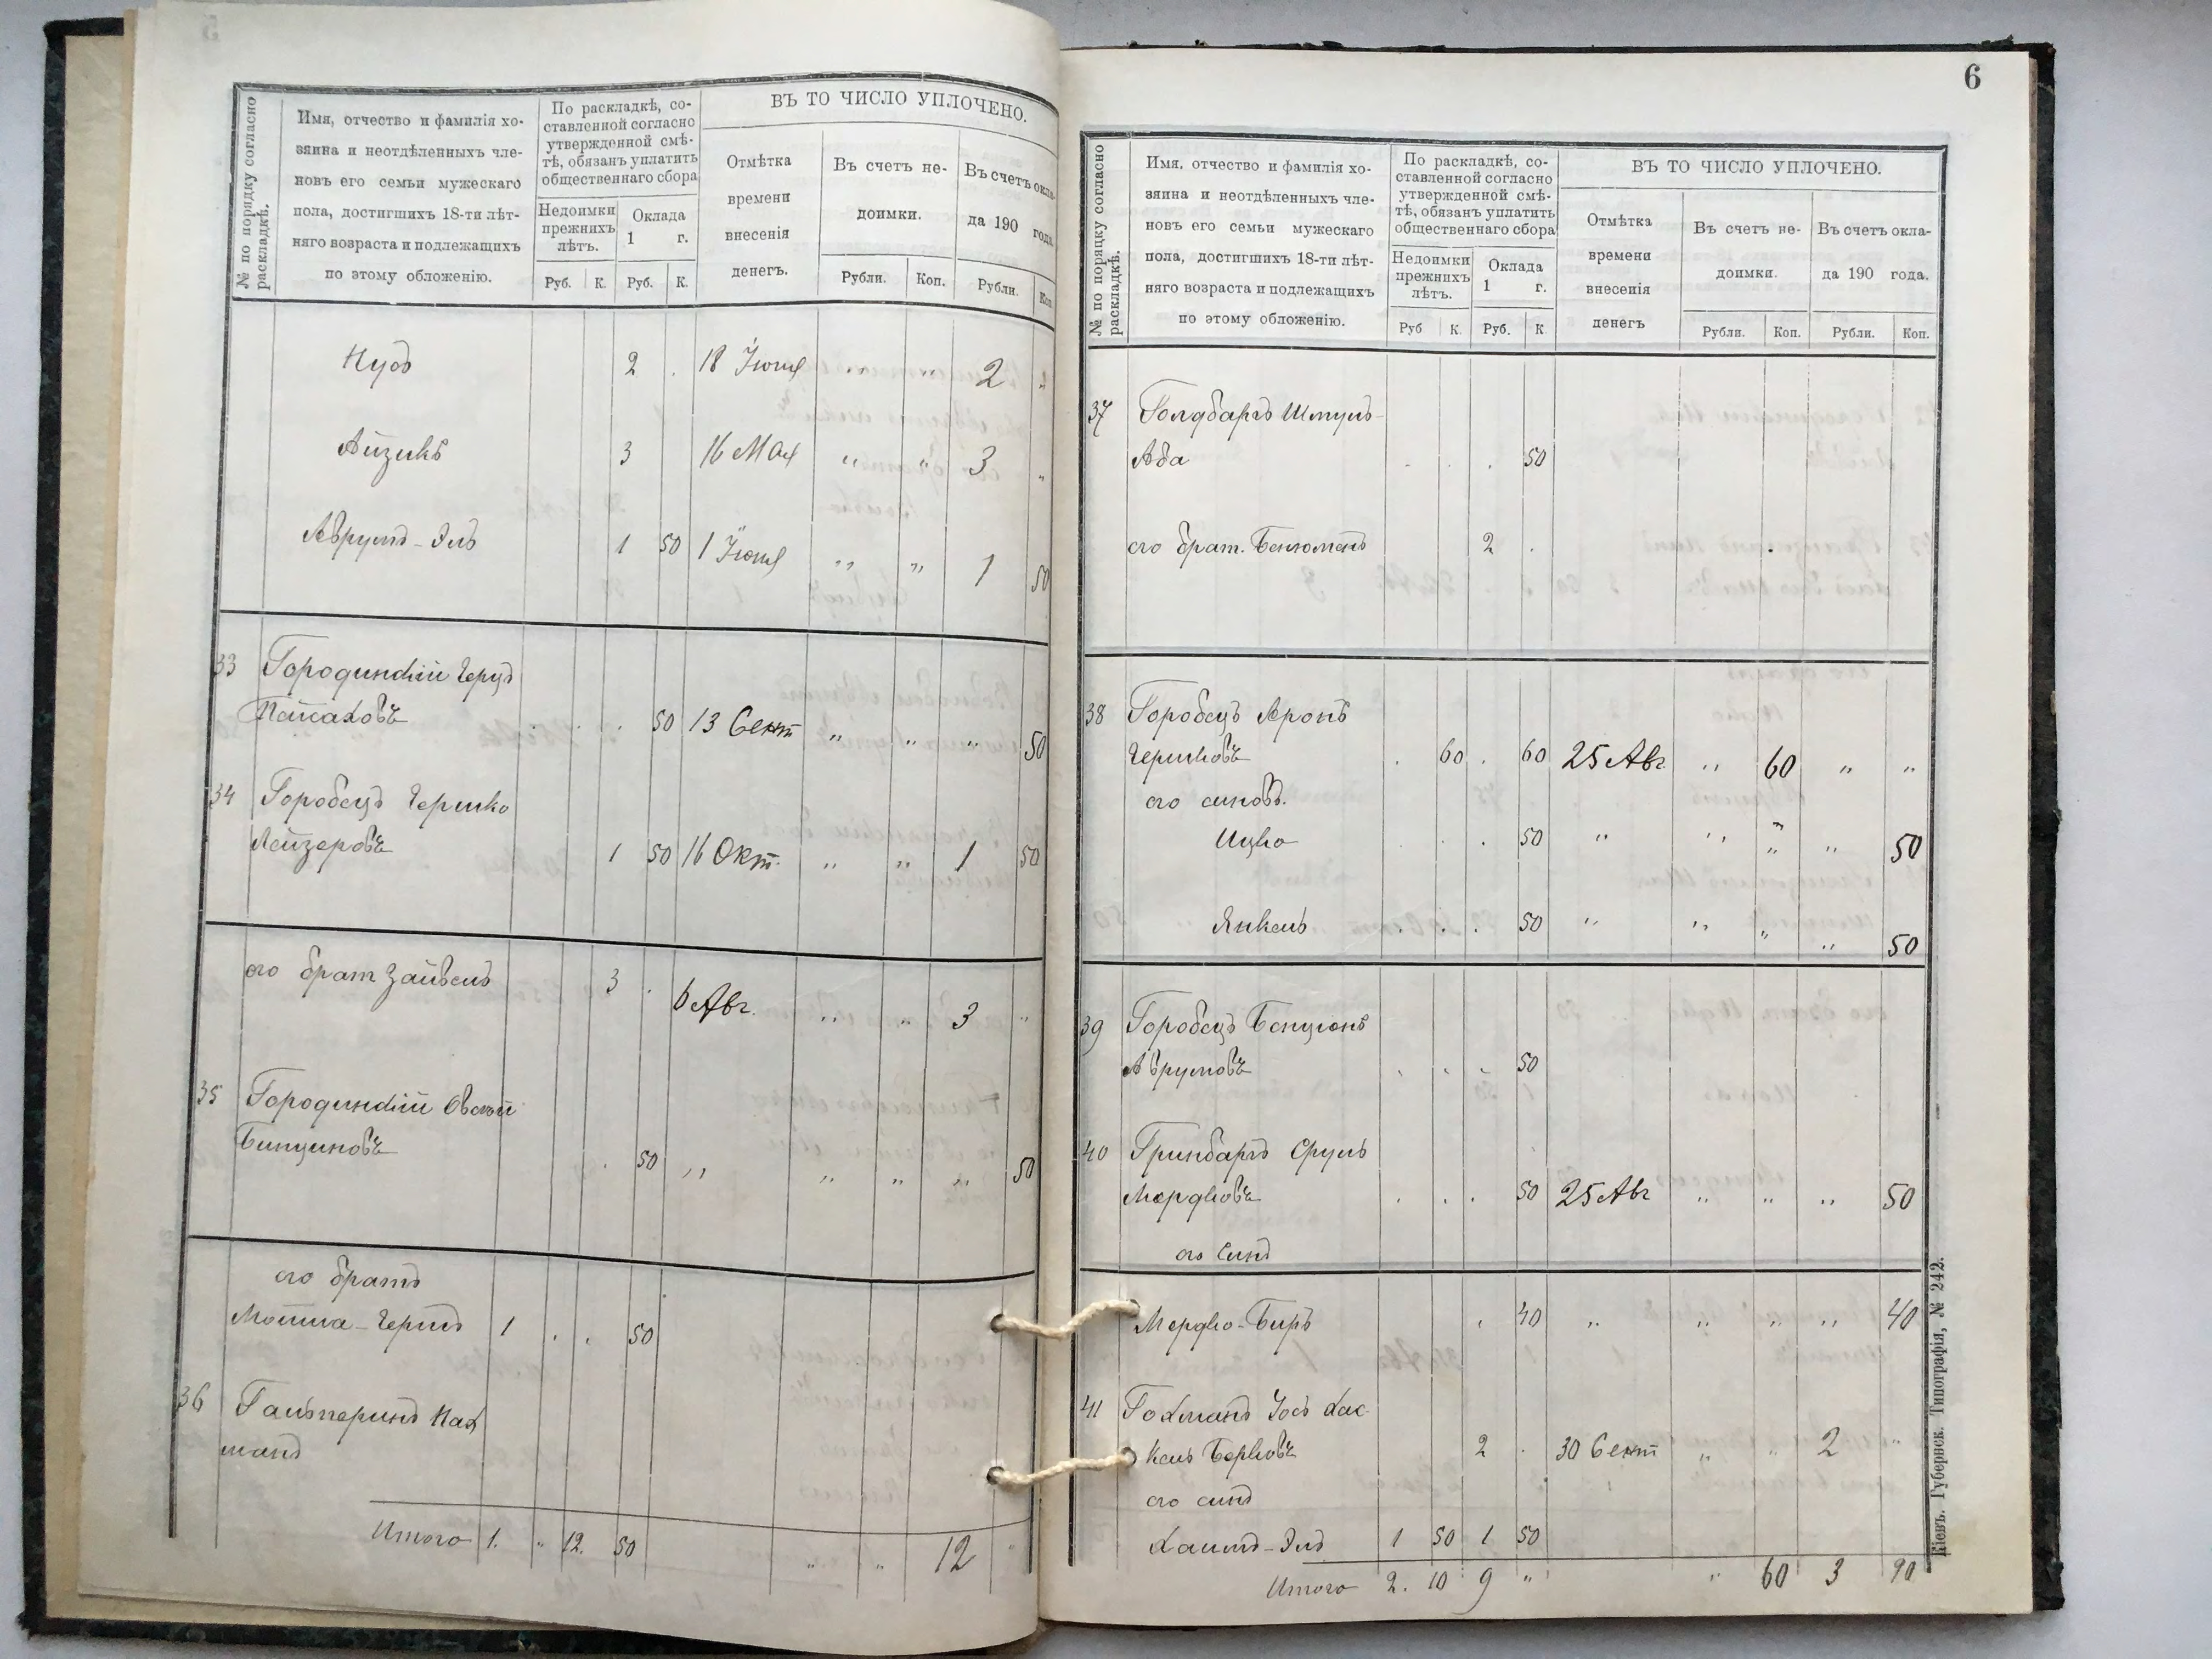 № по порядку согласно раскладкѣ.
Имя, отчество и фамилія хо-
зяина и неотдѣленныхъ чле-
новъ его семьи мужескаго
пола, достигшихъ 18-ти лѣт-
няго возраста и подлежащихъ
по этому обложенію.
По раскладкѣ, со-
ставленной согласно
утвержденной смѣ-
тѣ, обязанъ уплатить
общественнаго сбора
Недоимки
прежнихъ
лѣтъ.
Оклада
1 г.
Руб. К. Руб. К.
ВЪ ТО ЧИСЛО УПЛОЧЕНО.
Отмѣтка
времени
внесенія
денегъ.
Въ счетъ не-
доимки.
Въ счетъ окла-
да 190 года
Рубли. Коп. Рубли. Коп
Нусъ 2 . 18 Іюня " " 2 "
Айзикъ 3 16 Мая " " 3 "
Аврумъ-Эль 1 50 1 Іюня " " 1 50
33 Городинскій Герцъ
Пейсаховъ . . . 50 13 Сент " " " 50
34 Горобецъ Гершко
Лейзеровъ 1 50 16 Окт. " " 1 50
его брат Зайвель 3 . 6 Авг. " " 3 "
35 Городинскій Овсей
Бинциновъ . 50 " " " " 50
его братъ
Мотша-Герш 1 . . 50
36 Гальперинъ Нах
манъ
Итого 1. " 12. 50 " " 12 "
6
№ по порядку согласно раскладкѣ.
Имя, отчество и фамилія хо-
зяина и неотдѣленныхъ чле-
новъ его семьи мужескаго
пола, достигшихъ 18-ти лѣт-
няго возраста и подлежащихъ
по этому обложенію.
По раскладкѣ, со-
ставленной согласно
утвержденной смѣ-
тѣ, обязанъ уплатить
общественнаго сбора
Недоимки
прежнихъ
лѣтъ.
Оклада
1 г.
Руб К. Руб. К
ВЪ ТО ЧИСЛО УПЛОЧЕНО.
Отмѣтка
времени
внесенія
денегъ
Въ счетъ не-
доимки.
Въ счетъ окла-
да 190 года.
Рубли. Коп. Рубли. Коп.
37 Голдбаргъ Шмуль-
Аба . . . 50
его брат. Бенюменъ 2 .
38 Горобецъ Аронъ
Гершковъ . 60 . 60 25 Авг. " 60 " "
его сыновъ.
Ицко . . . 50 " " " " 50
Янкель . . . 50 " " " " 50
39 Горобецъ Бенционъ
Аврумовъ . . . 50
40 Гринбаргъ Сруль
Мордковъ . . . 50 25 Авг " " " 50
его сынъ
Мордко-Беръ . 40 " " " " 40
41 Гохманъ Іосъ Хас-
кель Берковъ 2 . 30 Сент " " 2 "
его сынъ
Хаимъ-Эль 1 50 1 50
Итого 2. 10 9 " " 60 3 90
Кіевъ. Губернск. Типографія, № 242.